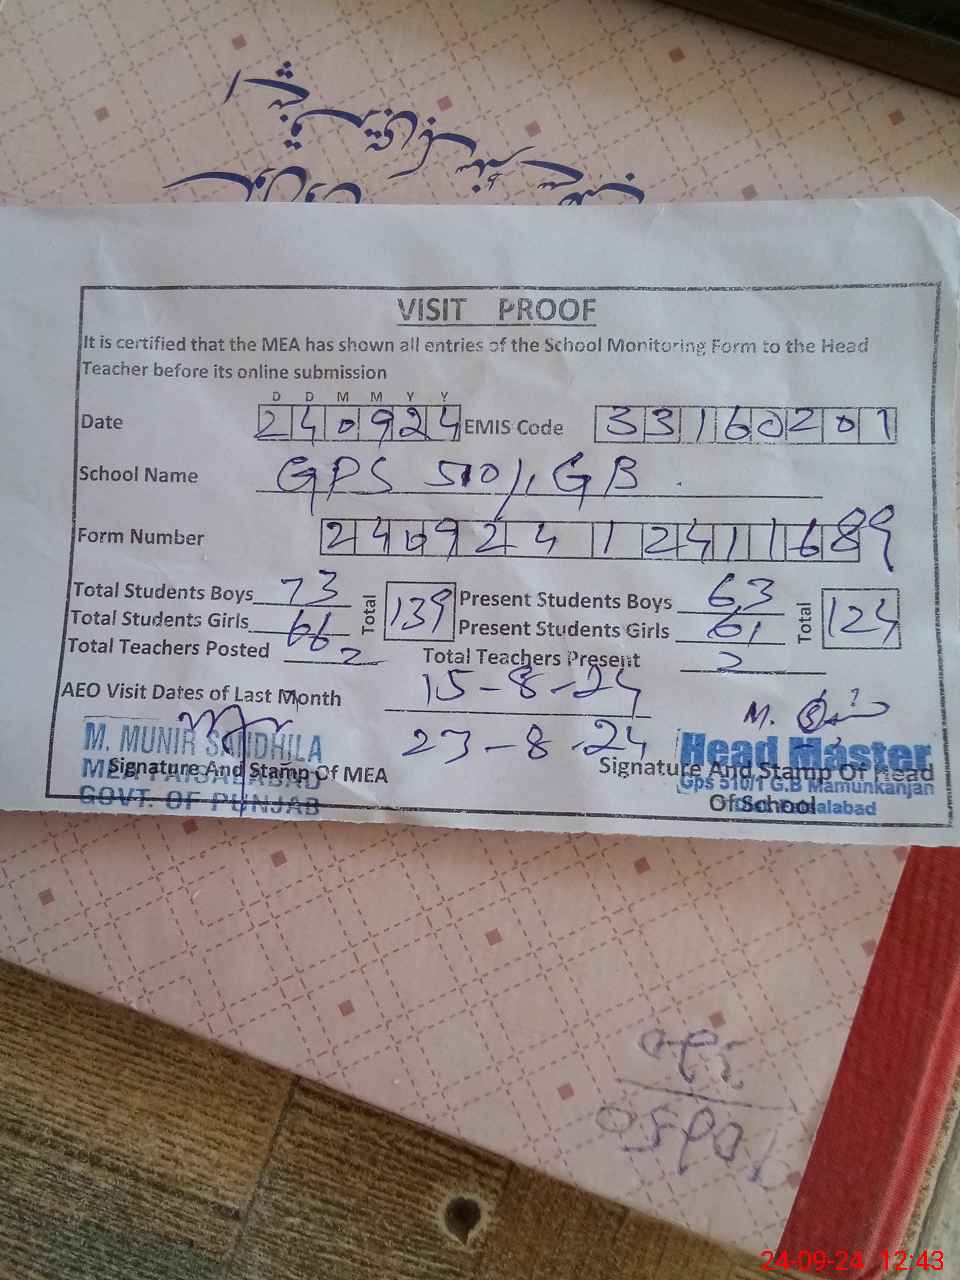 VISIT PROOF
It is certified that the MEA has shown all entries of the School Monitoring Form to the Head
Teacher before its online submission
D D M M Y Y
Date 240924 EMIS Code 33160201
School Name GPS 510/1 GB
Form Number 24092412411689
Total Students Boys 73 Total 139 Present Students Boys 63 Total 124
Total Students Girls 66 Present Students Girls 61
Total Teachers Posted 2 Total Teachers Present 2
AEO Visit Dates of Last Month 15-8-24
23-8-24
M. MUNIR SANDHILA
MEA FAISALABAD
GOVT. OF PUNJAB
Signature And Stamp Of MEA
Head Master
Gps 510/1 G.B Mamunkanjan
Signature And Stamp Of Head
Of School
24-09-24 12:43